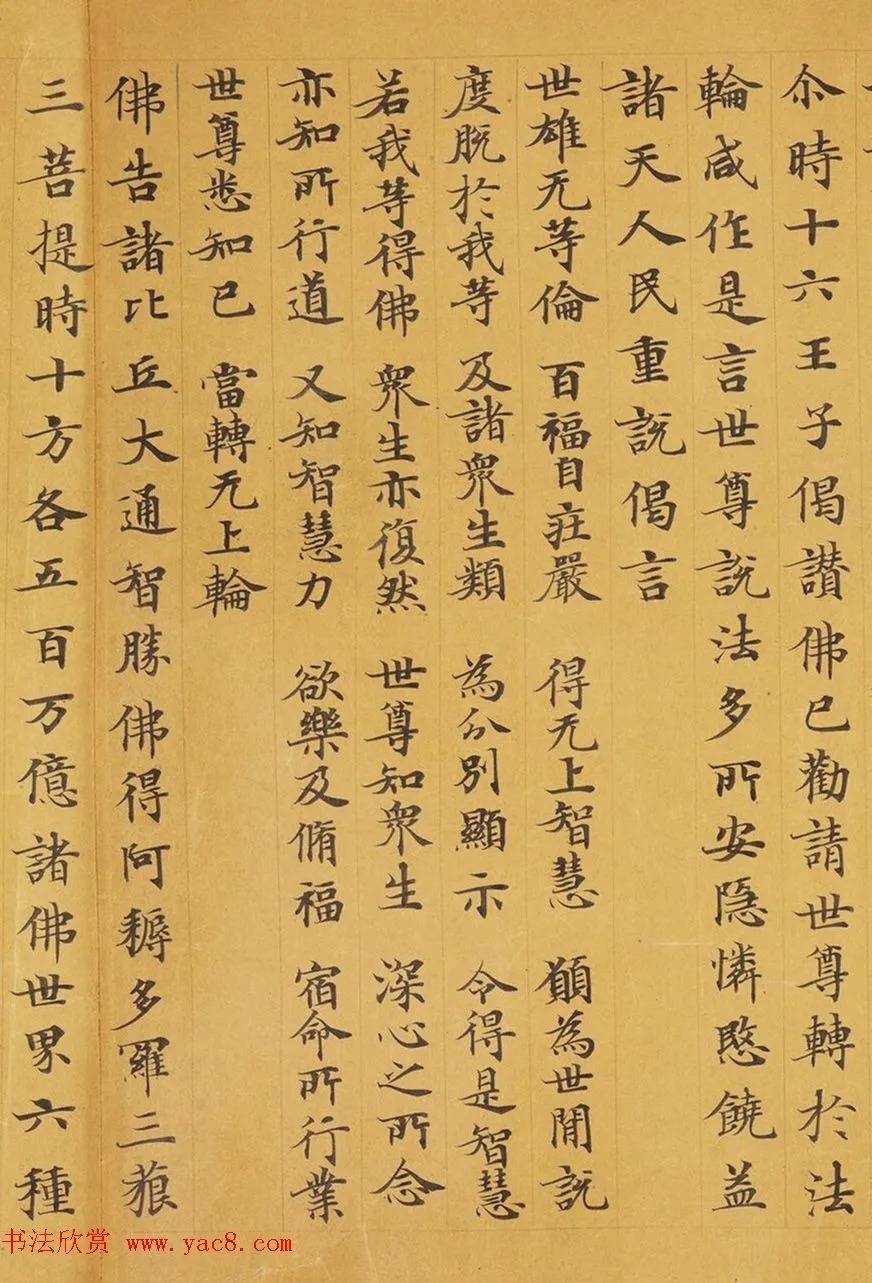 尒時十六王子偈讃佛已勸請世尊轉於法
輪咸作是言世尊說法多所安隱憐愍饒益
諸天人民重說偈言
世雄无等倫 百福自莊嚴 得无上智慧 願為世間說
度脫於我等 及諸衆生類 為分別顯示 令得是智慧
若我等得佛 衆生亦復然 世尊知衆生 深心之所念
亦知所行道 又知智慧力 欲樂及脩福 宿命所行業
世尊悉知已 當轉无上輪
佛告諸比丘大通智勝佛得阿耨多羅三藐
三菩提時十方各五百万億諸佛世界六種
书法欣赏 www.yac8.com